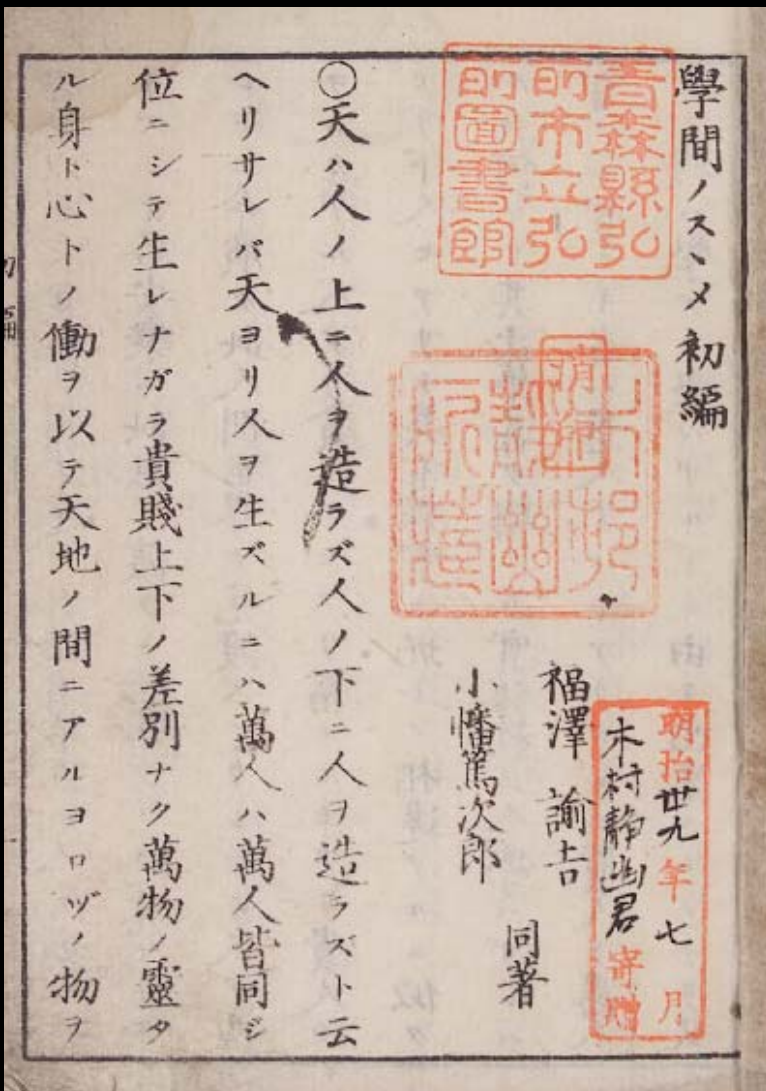 學問ノスヽメ 初編
青森縣弘
前市立弘
前圖書館
木邨
靜幽
所藏
明治卅九年七月
木村静幽君寄贈
福澤諭吉
小幡篤次郎
同著
〇天ハ人ノ上ニ人ヲ造ラズ人ノ下ニ人ヲ造ラズト云
ヘリサレバ天ヨリ人ヲ生ズルニハ萬人ハ萬人皆同ジ
位ニシテ生レナガラ貴賤上下ノ差別ナク萬物ノ靈タ
ル身ト心トノ働ヲ以テ天地ノ間ニアルヨロヅノ物ヲ